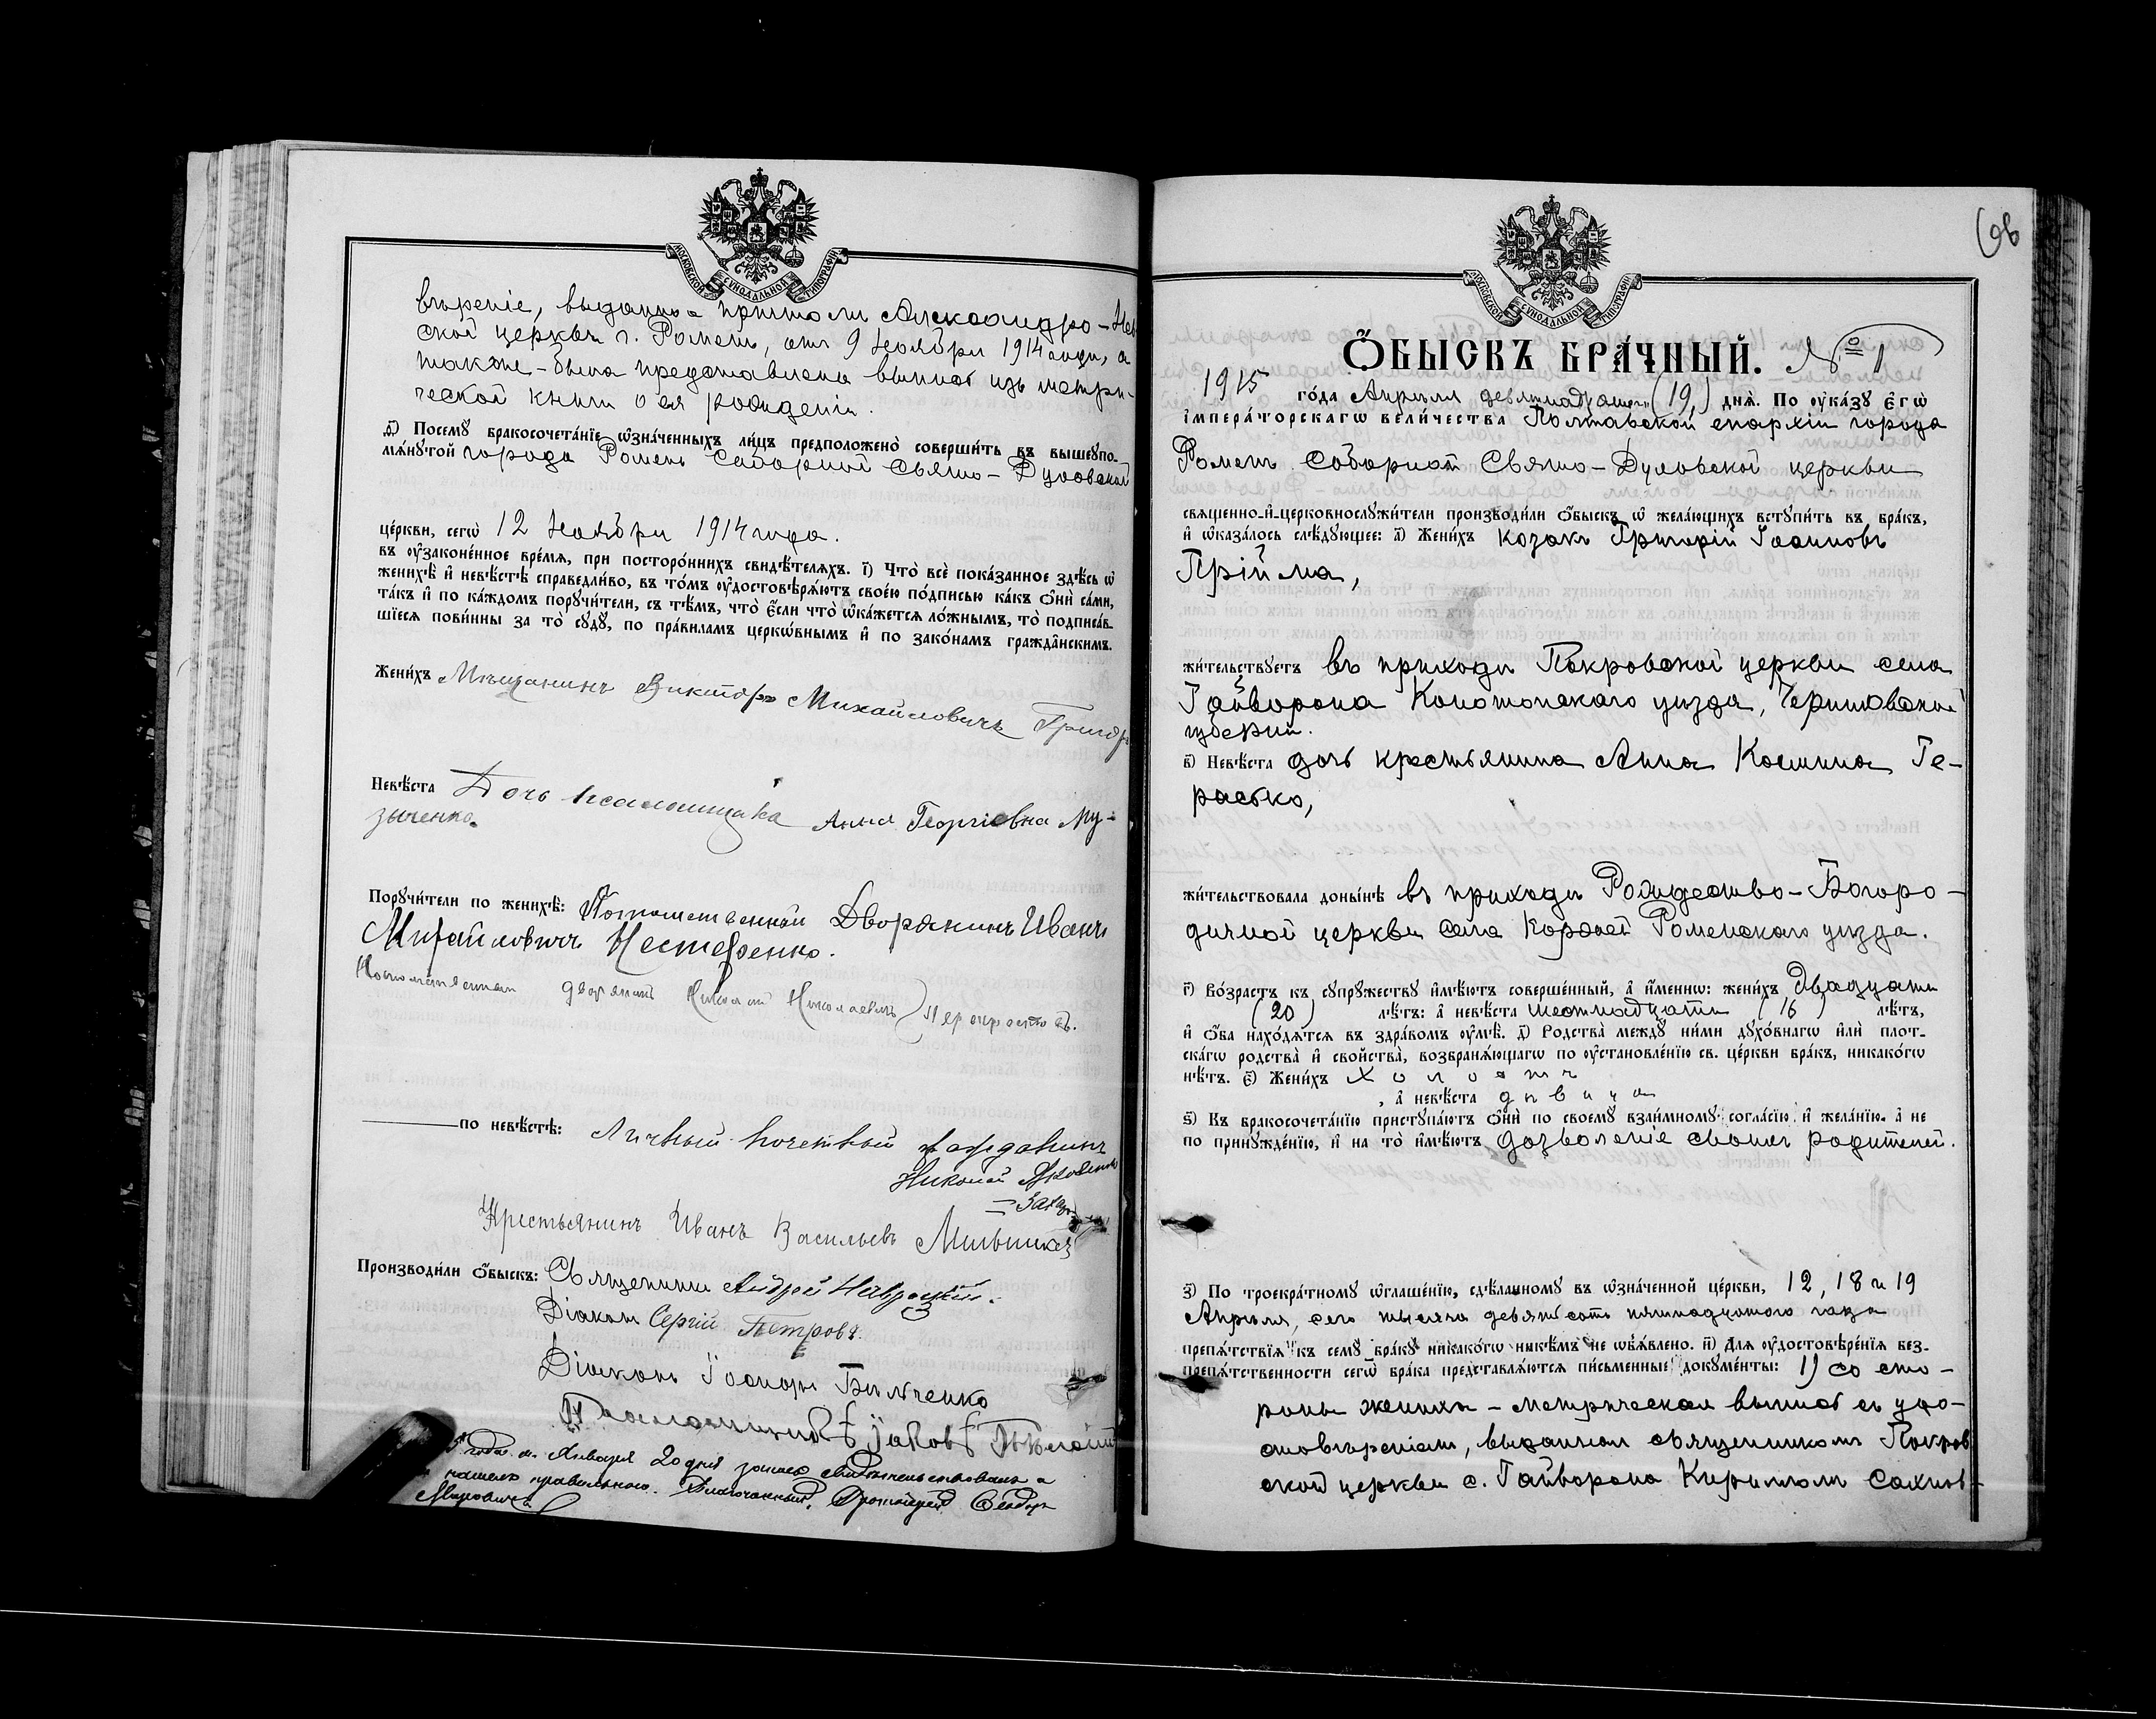 МОСКОВСКОЙ СѴНОДАЛЬНОЙ ТИПОГРАФІИ
вѣреніе, выданное причтомъ Александро-Нев
ской церкви г. Роменъ, отъ 9 Ноября 1914 года, а
также - была представлена выпись изъ метри-
ческой книги о ея рожденіи.
д҃) Посемꙋ бракосочетанїе ѡзначенныхъ лицъ предположено совершить въ вышеꙋпо-
мянꙋтой города Роменъ Соборной Свято-Духовской
церкви, сегѡ 12 Ноября 1914 года.
въ ꙋзаконенное время, при постороннихъ свидѣтеляхъ. і҃) Что все показанное здѣсь ѡ
женихѣ и невѣстѣ справедливо, въ томъ ꙋдостовѣряютъ своею подписью какъ они сами,
такъ и по каждомъ порꙋчители, съ тѣмъ, что если что ѡкажется ложнымъ, то подписав-
шїеся повинны за то сꙋдꙋ, по правиламъ церкѡвнымъ и по законамъ гражданскимъ.
Женихъ Мѣщанинъ Викторъ Михайловичъ Григор
Невѣста Дочь псаломщика Анна Георгіевна Му-
зыченко.
Порꙋчители по женихѣ: Потомственный Дворянинъ Иванъ
Михайловичъ Нестеренко.
Потомственный дворянинъ Николай Николаевичъ
по невѣстѣ: Личный почетный гражданинъ
Николай Яковлевъ
Крестьянинъ Иванъ Васильевъ
Производили ѡбыскъ: Священникъ Андрей Навроцкій.
Діаконъ Сергій Петровъ.
Діаконъ Іоаннъ
Псаломщикъ Іаковъ
года м. Января 20 дня запись свидѣтельствовалъ и
нашелъ правильною. Благочинный, Протоіерей Ѳеодоръ
МОСКОВСКОЙ СѴНОДАЛЬНОЙ ТИПОГРАФІИ
ѠБЫСКЪ БРАЧНЫЙ. № 1
1915 года Апрѣля девятнадцатаго (19) дня. По ꙋказꙋ ЕГѠ
ІМПЕРАТОРСКАГѠ ВЕЛИЧЕСТВА Полтавской епархіи города
Роменъ Соборной Свято-Духовской церкви
священно-и-церковнослꙋжители производили ѡбыскъ ѡ желающихъ встꙋпить въ бракъ,
и ѡказалось слѣдꙋющее: а҃) Женихъ козакъ Григорій Іоанновъ
Прійма,
жительствꙋетъ въ приходѣ Покровской церкви села
Гайворона Конотопскаго уѣзда, Черниговской
губерніи.
в҃) Невѣста дочь крестьянина Анна Космина Ге-
расько,
жительствовала донынѣ въ приходѣ Рождество-Богоро-
дичной церкви села Коровай Роменскаго уѣзда.
г҃) Возрастъ къ сꙋпрꙋжествꙋ имѣютъ совершенный, а именно: женихъ Двадцати
(20) лѣтъ: а невѣста шестнадцати (16) лѣтъ,
и ѡба находятся въ здравомъ ꙋмѣ. д҃) Родства междꙋ ними дꙋховнагѡ или плот-
скагѡ родства и свойства, возбраняющагѡ по ꙋстановленїю св. церкви бракъ, никакогѡ
нѣтъ. е҃) Женихъ холостъ
, а невѣста дѣвица
ѕ҃) Къ бракосочетанїю пристꙋпаютъ они по своемꙋ взаимномꙋ согласїю и желанїю. а не
по принꙋжденїю, и на то имѣютъ дозволеніе своихъ родителей.
з҃) По троекратномꙋ ѡглашенїю, сдѣланномꙋ въ ѡзначенной церкви, 12, 18 и 19
Апрѣля, сего тысяча девятьсотъ пятнадцатаго года
препятствїя къ семꙋ бракꙋ никакогѡ никѣмъ не ѡбъявлено. и҃) Для ꙋдостовѣренїя без-
препятственности сегѡ брака представляются письменные докꙋменты: 1) со сто-
роны жениха - метрическая выпись съ удо-
стовѣреніемъ, выданная священникомъ Покров
ской церкви с. Гайворона Кирилломъ Сахнов-